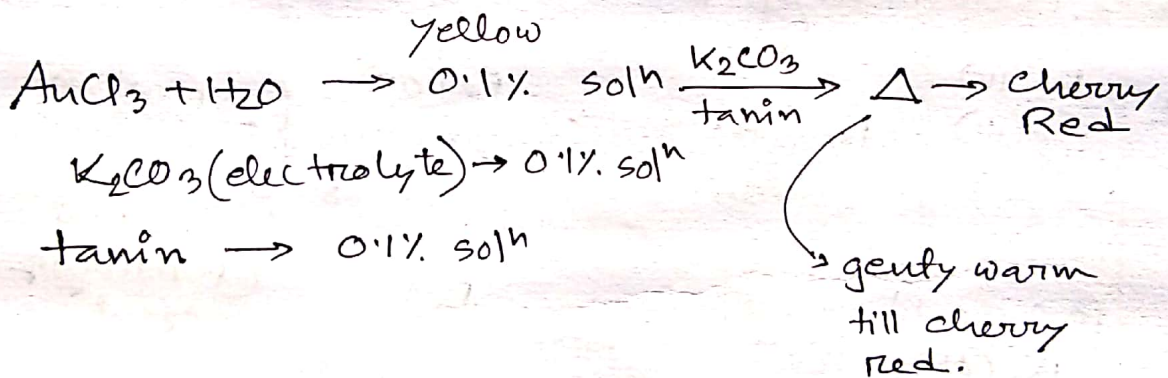 yellow
AuCl3 + H2O → 0.1% solⁿ K2CO3 tanin → Δ → Cherry Red
K2CO3 (electrolyte) → 0.1% solⁿ
tanin → 0.1% solⁿ
genty warm
till cherry
red.